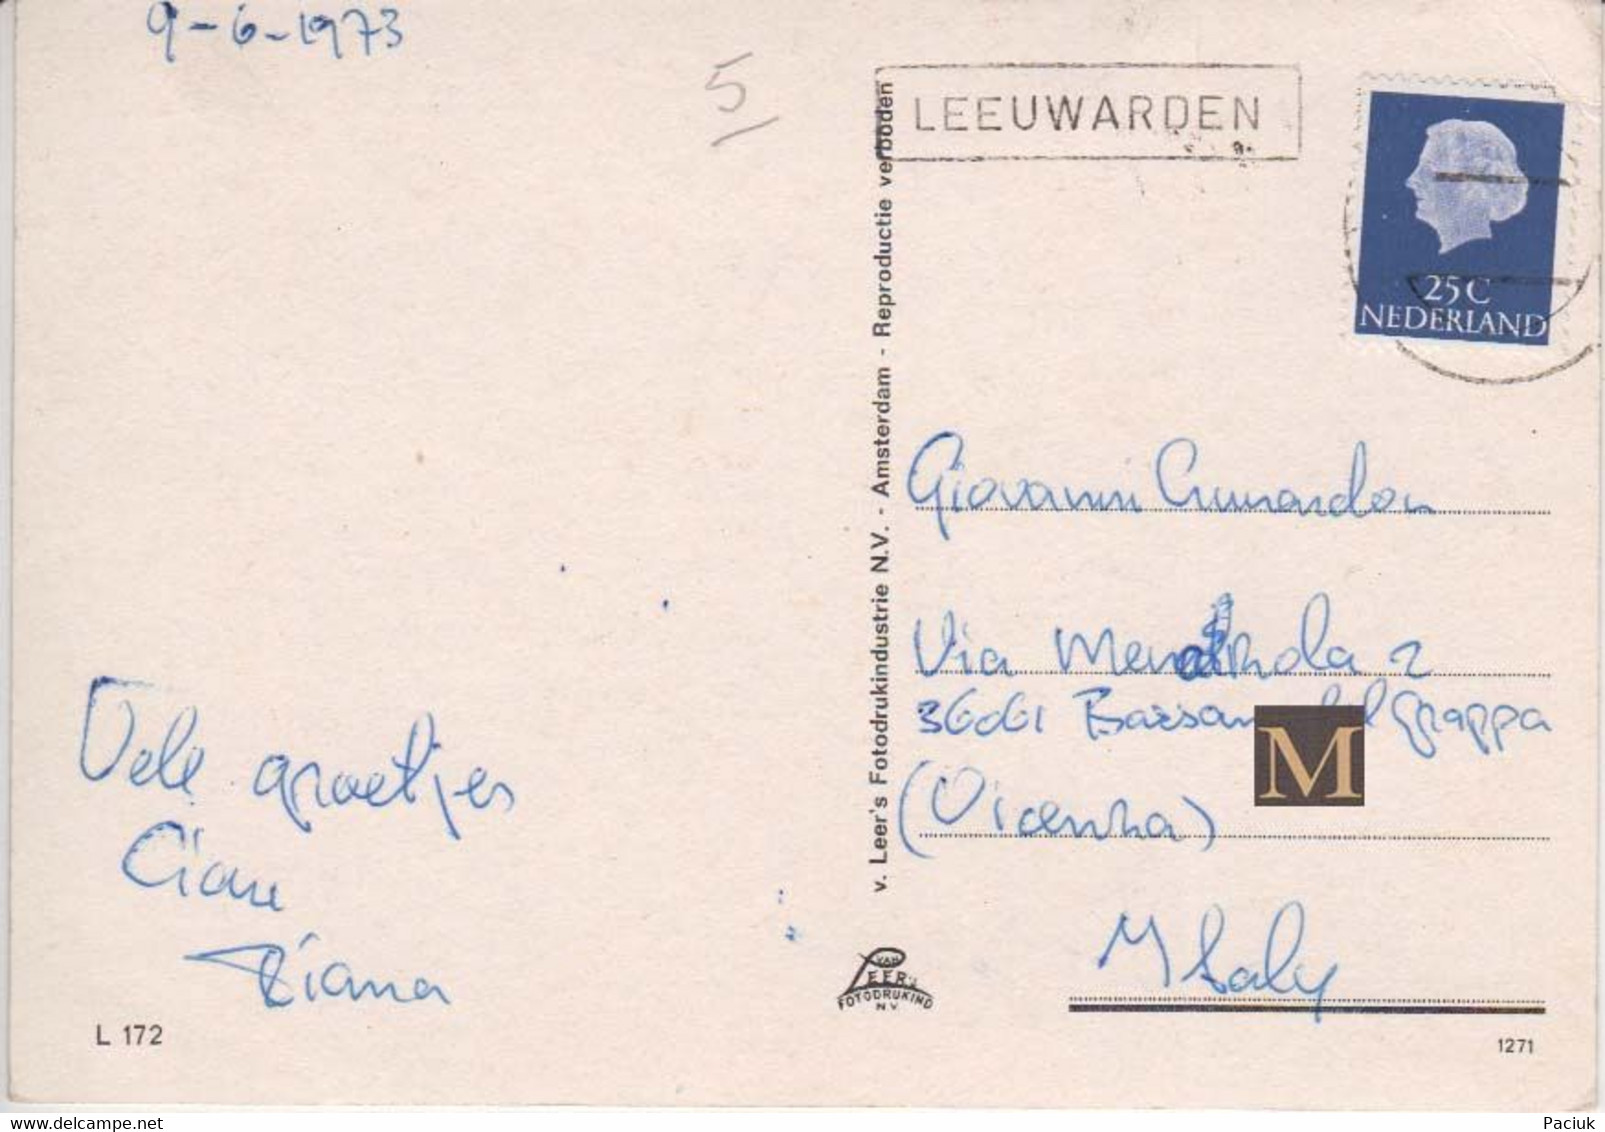 9-6-1973
5
LEEUWARDEN
25C
NEDERLAND
v. Leer's Fotodrukindustrie N.V. - Amsterdam - Reproductie verboden
Giovanni
Via 2
36061 Bassan del Grappa
M
(Vicenza)
Ytaly
Vele groetjes
Ciau
Ziana
VAN
LEER'S
FOTODRUKIND
N V
L 172
1271
Paciuk
delcampe.net